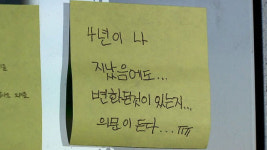 4년이 나
지났음에도...
변화된것이 있는지...
의문이 든다... ㅠㅠ